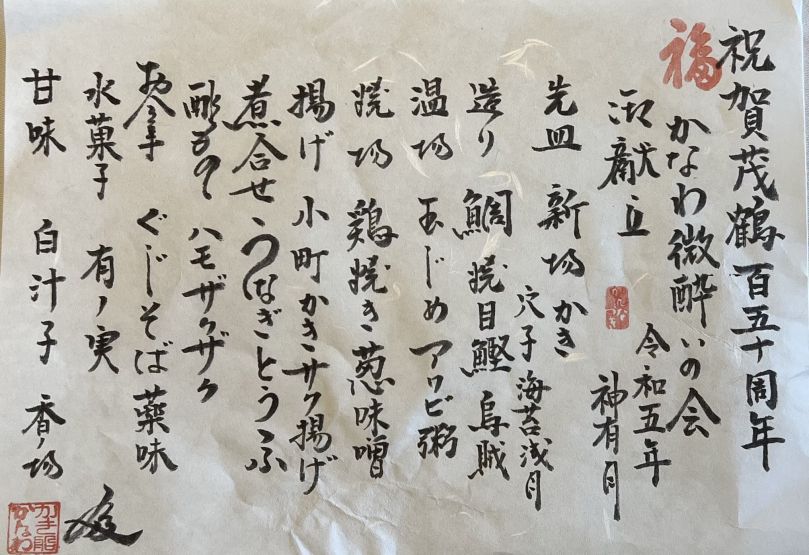 祝賀茂鶴百五十周年
福
かなわ微酔いの会
令和五年
神有月
御献立
先皿 新場かき
穴子海苔浅月
造り 鯛焼目鰹烏賊
温場 玉じめアワビ粥
焼場 鶏焼き葱味噌
揚げ 小町かきサク揚げ
煮合せ うなぎとうふ
酢もの ハモザクザク
お食事 ぐじそば薬味
水菓子 有ノ実
甘味 白汁子 香ノ場
かき船
かなわ